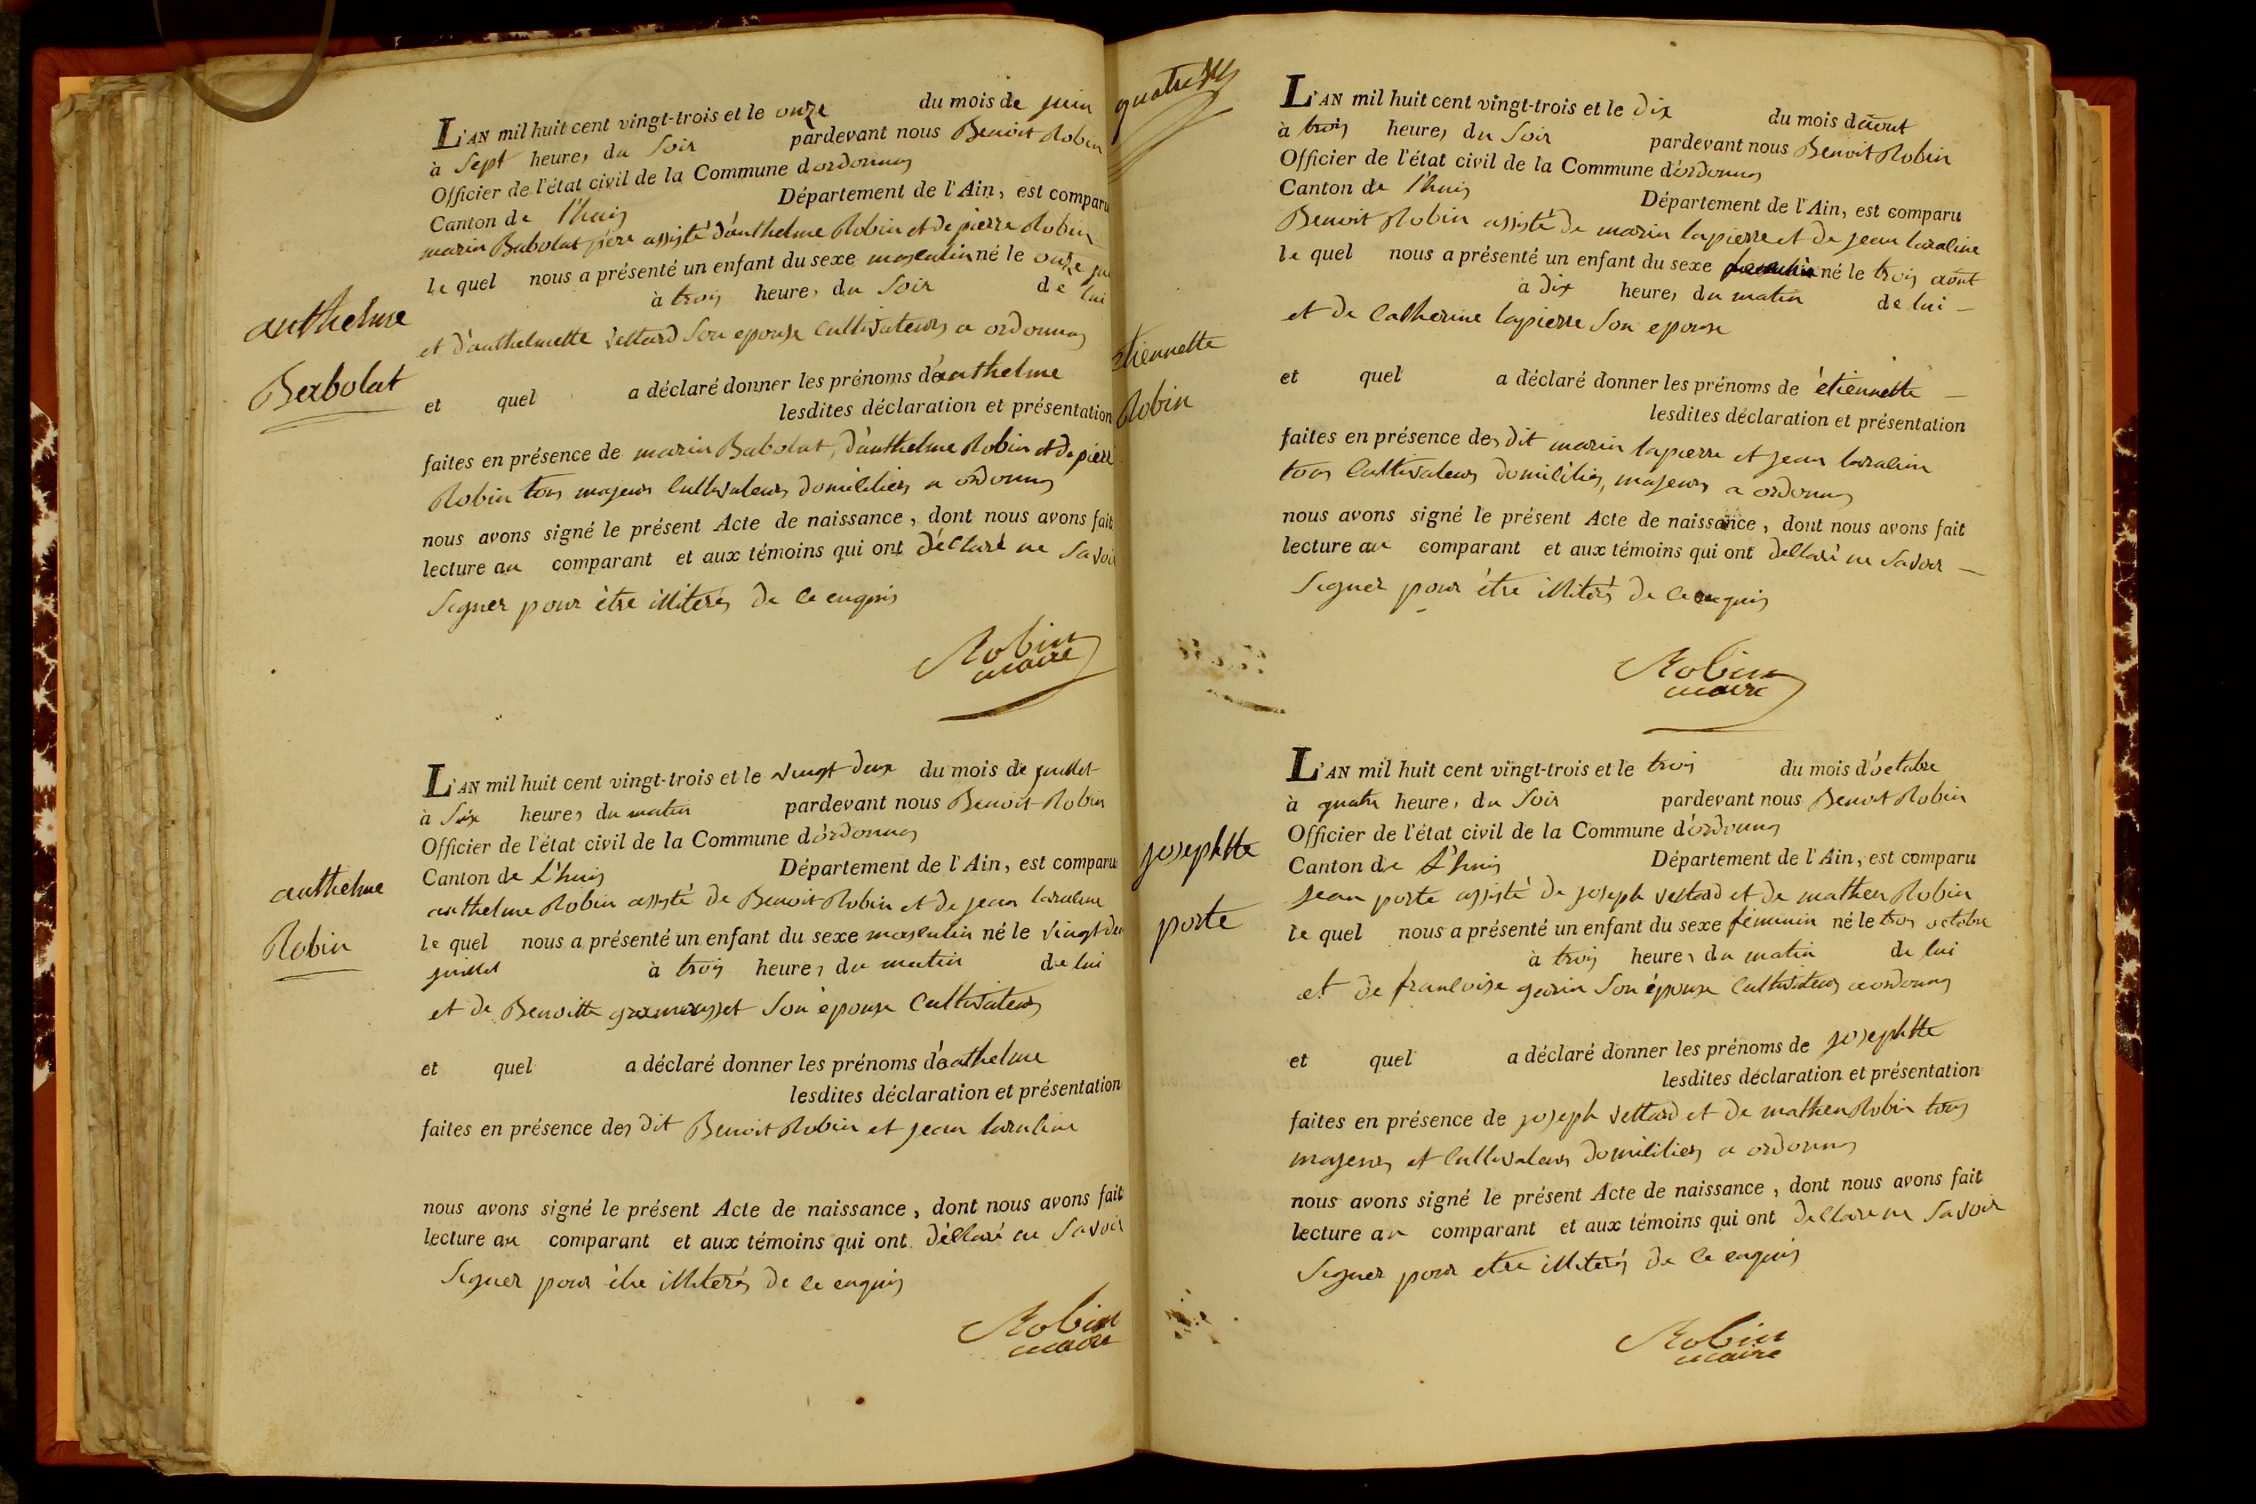 L'AN mil huit cent vingt-trois et le onze du mois de juin
à Sept heures du Soir pardevant nous Benoit Robin
Officier de l'état civil de la Commune d'ordonnas
Canton de l'huis Département de l'Ain, est comparu
marin Babolat père assisté d'anthelme Robin et de pierre Robin
le quel nous a présenté un enfant du sexe masculin né le onze
à trois heures du Soir de lui
et d'anthelmette Vettard Son epouse Cultivateurs a ordonnas
et quel a déclaré donner les prénoms d'anthelme
lesdites déclaration et présentation
faites en présence de marin Babolat, d'anthelme Robin et de pierre
Robin tous majeurs Cultivateurs domiciliés a ordonnas
nous avons signé le présent Acte de naissance, dont nous avons fait
lecture au comparant et aux témoins qui ont déclaré ne Savoir
Signer pour être illiterés de ce enquis
Robin
maire
anthelme
Babolat
L'AN mil huit cent vingt-trois et le vingt deux du mois de juillet
à Six heures du matin pardevant nous Benoit Robin
Officier de l'état civil de la Commune d'ordonnas
Canton de L'huis Département de l'Ain, est comparu
anthelme Robin assisté de Benoit Robin et de jean
le quel nous a présenté un enfant du sexe masculin né le vingt deu
juillet à trois heures du matin de lui
et de Benoitte Son épouse Cultivateurs
et quel a déclaré donner les prénoms d'anthelme
lesdites déclaration et présentation
faites en présence des dit Benoit Robin et jean
nous avons signé le présent Acte de naissance, dont nous avons fait
lecture au comparant et aux témoins qui ont déclaré ne Savoir
Signer pour être illiterés de ce enquis
Robin
maire
anthelme
Robin
L'AN mil huit cent vingt-trois et le dix du mois daout
à trois heures du Soir pardevant nous Benoit Robin
Officier de l'état civil de la Commune d'ordonnas
Canton de l'huis Département de l'Ain, est comparu
Benoit Robin assisté de marin lapierre et de jean
le quel nous a présenté un enfant du sexe né le trois aout
à dix heures du matin de lui
et de Catherine lapierre Son epouse
et quel a déclaré donner les prénoms de étiennette
lesdites déclaration et présentation
faites en présence des dit marin lapierre et jean
tous Cultivateurs domiciliés, majeurs a ordonnas
nous avons signé le présent Acte de naissance, dont nous avons fait
lecture au comparant et aux témoins qui ont déclaré ne Savoir
Signer pour être illiterés de ce enquis
Robin
maire
étiennette
Robin
L'AN mil huit cent vingt-trois et le trois du mois d'octobre
à quatre heures du Soir pardevant nous Benoit Robin
Officier de l'état civil de la Commune d'ordonnas
Canton de L'huis Département de l'Ain, est comparu
jean porte assisté de joseph vettard et de mathieu Robin
le quel nous a présenté un enfant du sexe féminin né le trois octobre
à trois heures du matin de lui
et de francoise garin Son épouse Cultivateurs a ordonnas
et quel a déclaré donner les prénoms de josephtte
lesdites déclaration et présentation
faites en présence de joseph vettard et de mathieu Robin tous
majeurs et Cultivateurs domiciliés a ordonnas
nous avons signé le présent Acte de naissance, dont nous avons fait
lecture au comparant et aux témoins qui ont déclaré ne Savoir
Signer pour etre illiterés de ce enquis
Robin
maire
josephtte
porte